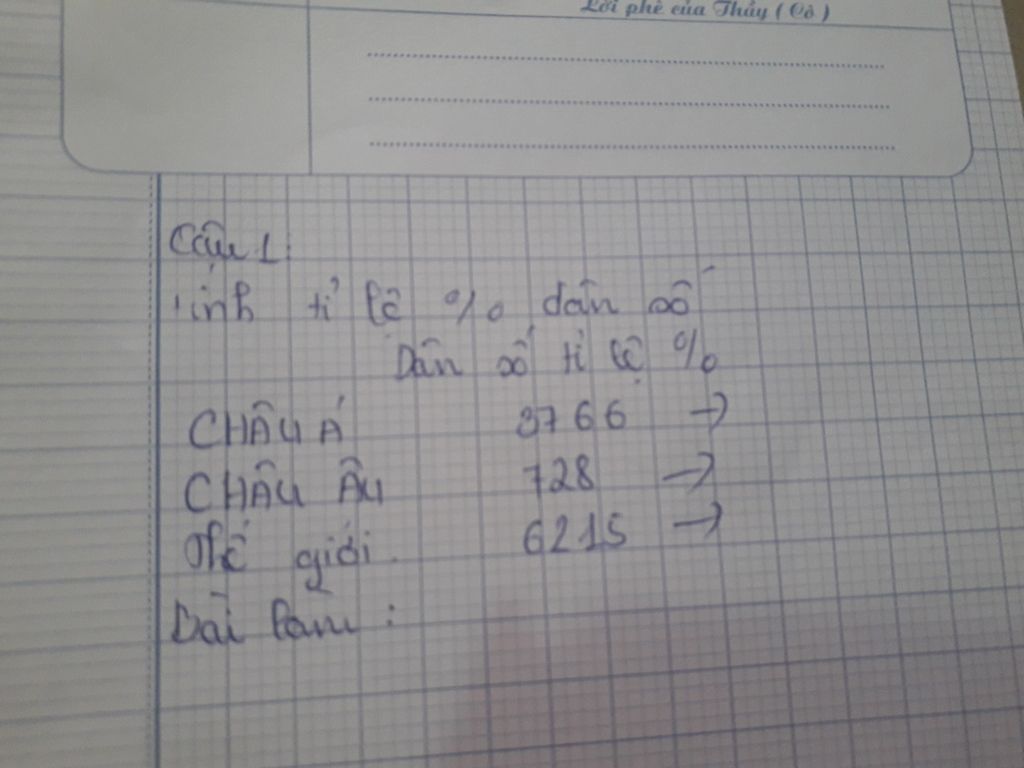 Lời phê của Thầy (Cô)
Câu 1:
Tính tỉ lệ % dân số
Dân số tỉ lệ %
CHÂU Á 3766 →
CHÂU ÂU 728 →
Thế giới. 6215 →
Bài làm :